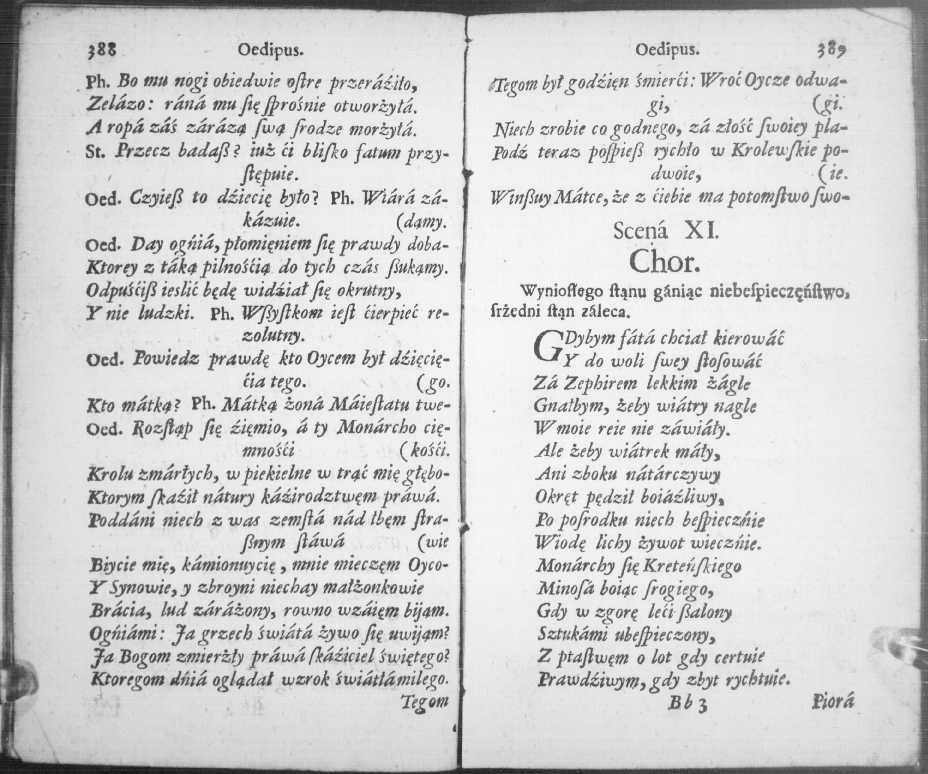 388 Oedipus.
Ph. Bo mu nogi obiedwie ostre przeráźiło,
Zelázo: ráná mu się sprośnie otworżyłá.
A ropá záś zárázą swą srodze morżyłá.
St. Przecz badaß? iuż ći blisko fatum przy-
stępuie.
Oed. Czyieß to dźiecię było? Ph. Wiárá zá-
kázuie. (damy.
Oed. Day ogńiá, płomięniem się prawdy doba-
Ktorey z táką pilnośćią do tych czás ßukamy.
Odpuśćiß ieslić będę widźiał się okrutny,
Y nie ludzki. Ph. Wßystkom iest ćierpieć re-
zolutny.
Oed. Powiedz prawdę kto Oycem był dźięcię-
ćia tego. (go.
Kto mátką? Ph. Mátką żoná Máiestatu twe-
Oed. Rozstąp się źięmio, á ty Monárcho cię-
mnośći (kośći.
Krolu zmárłych, w piekielne w trąć mię głębo-
Ktorym skaźił nátury káźirodztwęm práwá.
Poddáni niech z was zemstá nád łbęm stra-
ßnym stáwá (wie
Biycie mię, kámionuycię, mnie mieczęm Oyco-
Y Synowie, y zbroyni niechay małżonkowie
Brácia, lud zárázony, rowno wzáięm bijam.
Ogńiámi: Ja grzech świátá żywo się uwijam?
Ja Bogom zmierżły práwá skáźiciel świętego?
Ktoregom dńiá oglądał wzrok świátłá milego.
Tegom
Oedipus. 389
Tegom był godźięn śmierći: Wroć Oycze odwa-
gi, (gi.
Niech zrobie co godnego, zá złość swoiey pla-
Podź teraz pospieß rychło w Krolewskie po-
dwoie, (ie.
Winßuy Mátce, że z ćiebie ma potomstwo swo-
Scęná XI.
Chor.
Wyniosłego stąnu gániąc niebespieczęństwo,
srżedni stąn záleca.
GDybym fátá chciał kierowáć
Y do woli swey stosowáć
Zá Zephirem lekkim żágle
Gnałbym, żeby wiátry nagle
W moie reie nie záwiáły.
Ale żeby wiátrek máły,
Ani zboku nátárczywy
Okręt pędził boiáźliwy,
Po posrodku niech bespieczńie
Wiodę lichy żywot wieczńie.
Monárchy się Kreteńskiego
Minosá boiąc srogiego,
Gdy w zgorę leći ßalony
Sztukámi ubespieczony,
Z ptastwęm o lot gdy certuie
Prawdźiwym, gdy zbyt rychtuie.
Bb 3 Piorá